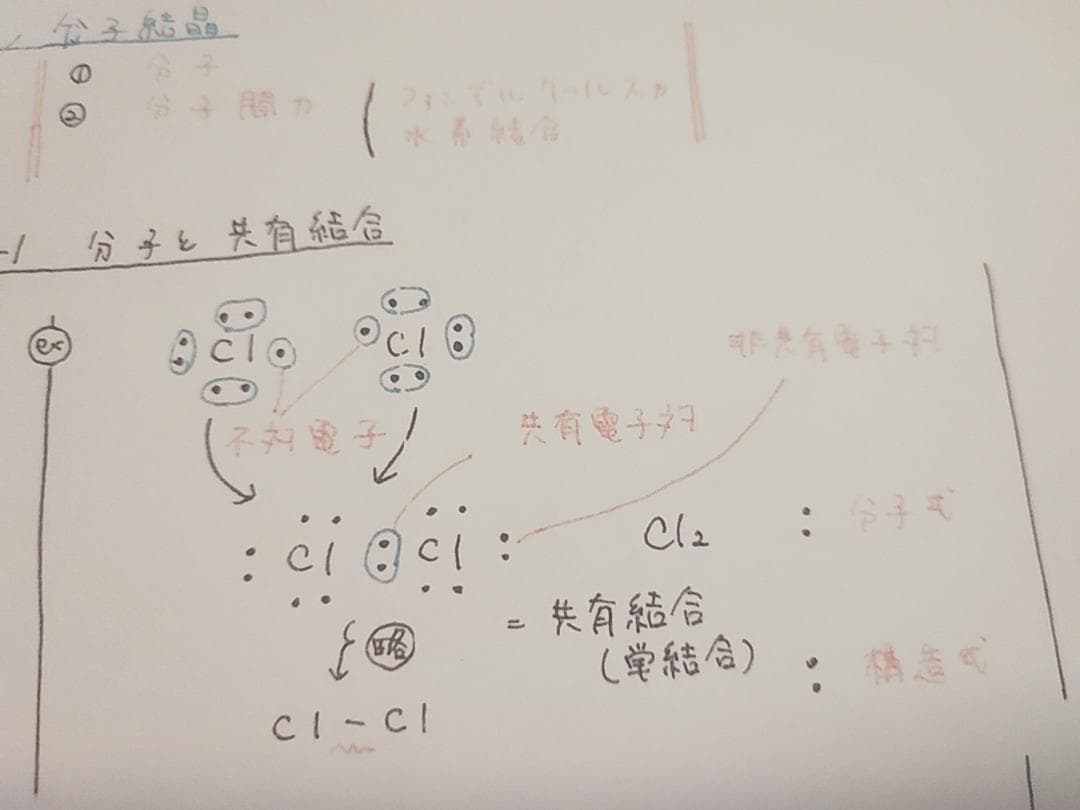 分子結晶
① 分子
② 分子間力 ( ファンデルワールス力
水素結合
-1 分子と共有結合
ex
Cl Cl
非共有電子対
不対電子
共有電子対
Cl : Cl :
Cl₂ : 分子式
略
= 共有結合
(単結合) : 構造式
Cl - Cl